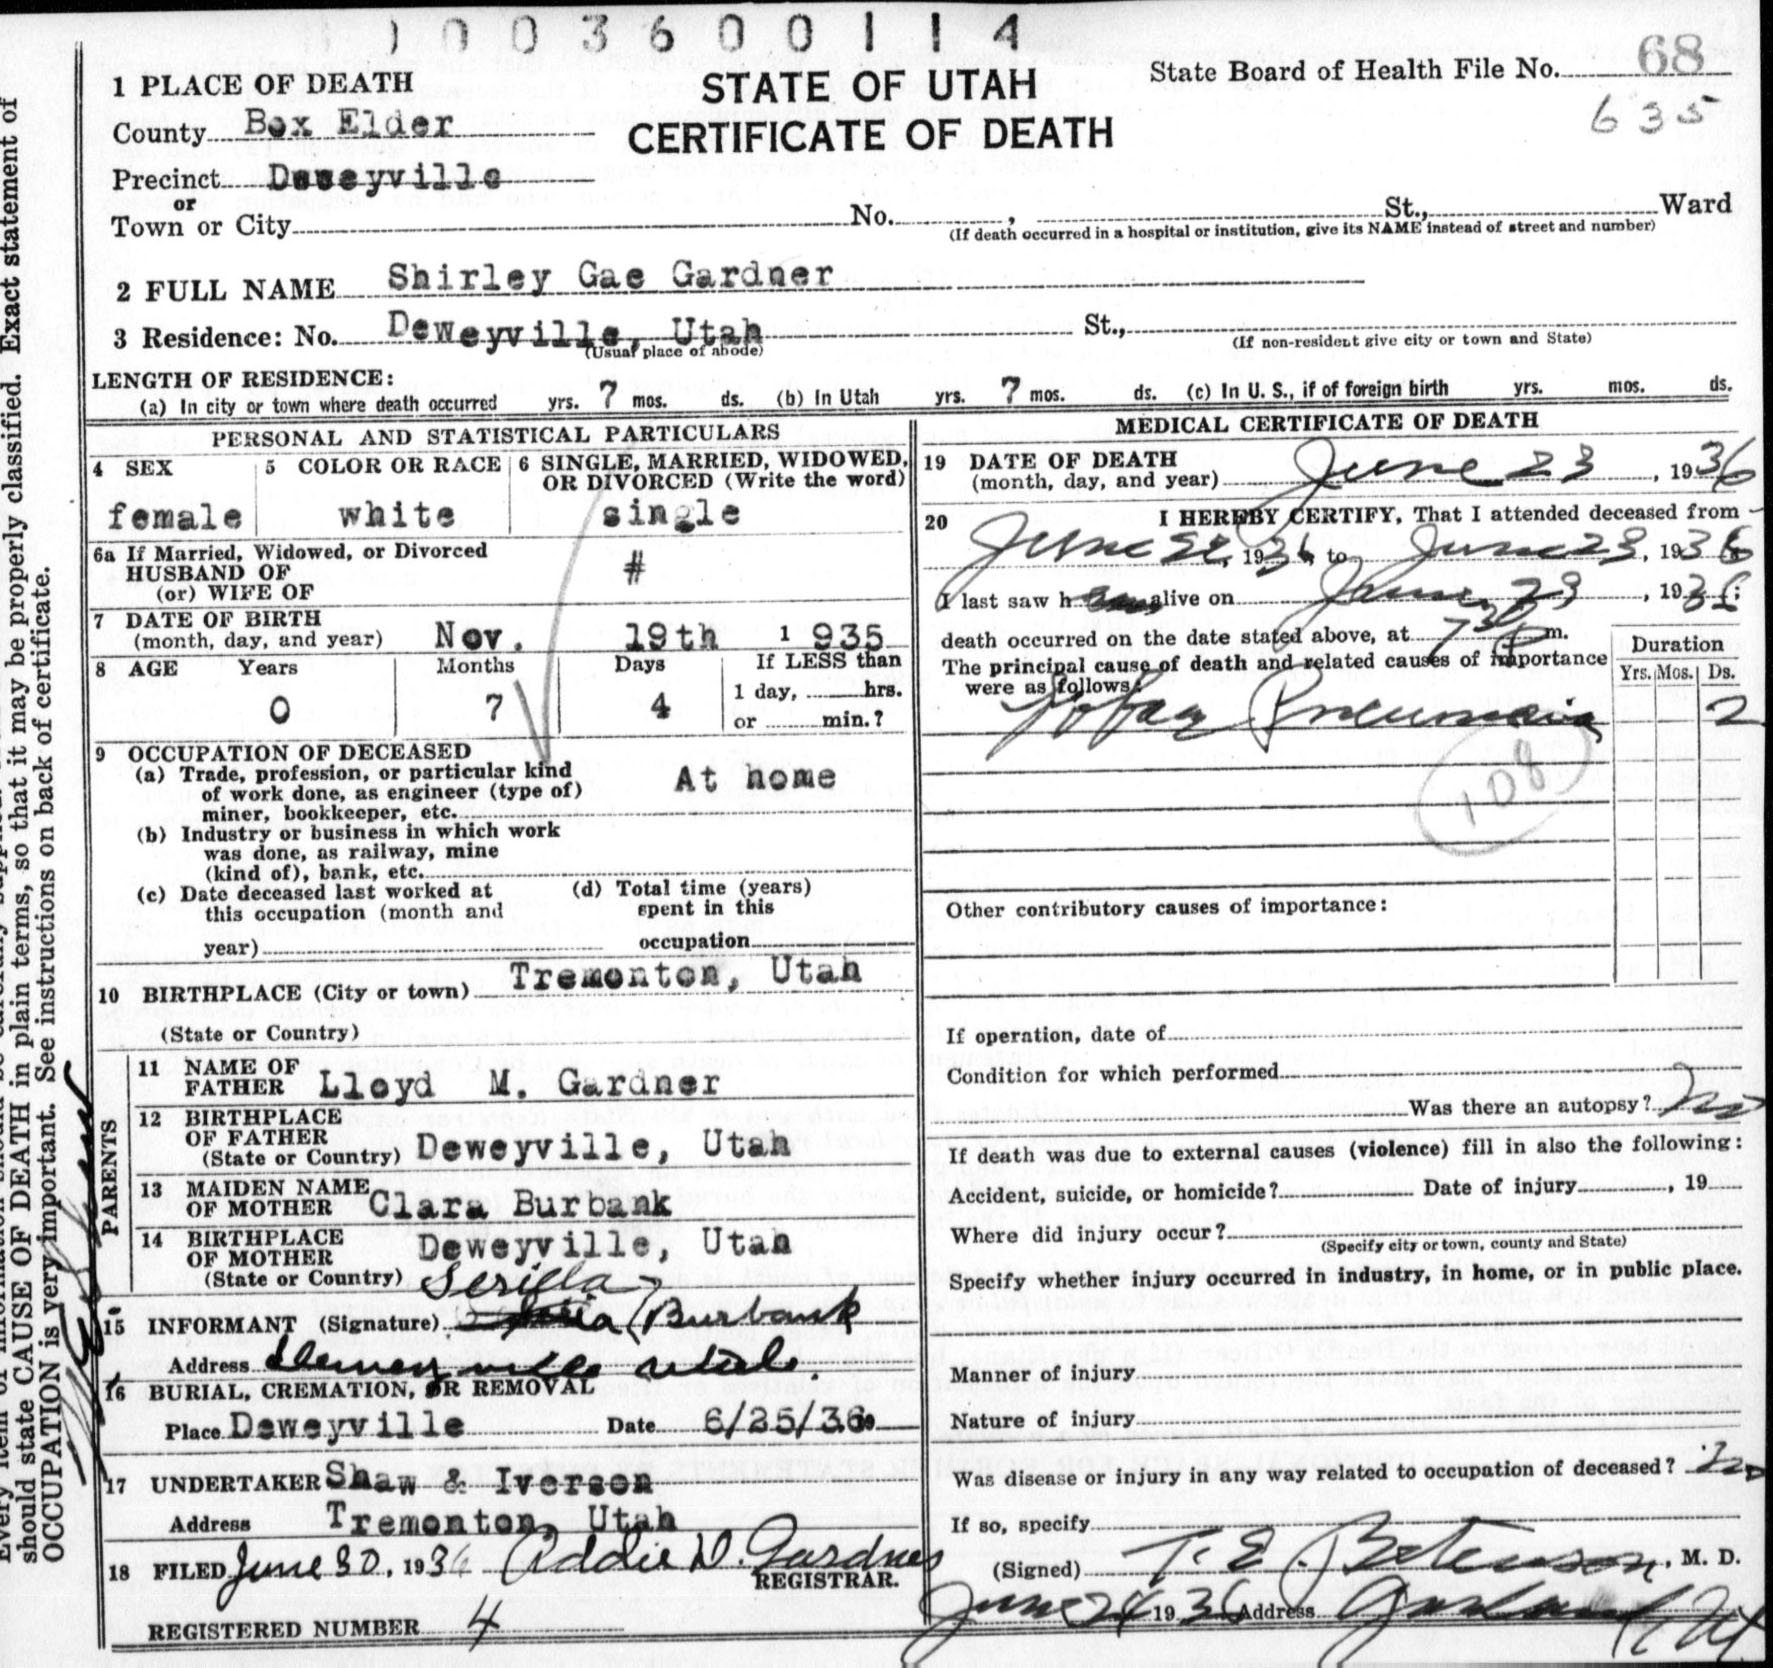 1003600114
1 PLACE OF DEATH
STATE OF UTAH
CERTIFICATE OF DEATH
State Board of Health File No. 68
635
County Box Elder
Precinct Deweyville
or
Town or City No. , St., Ward
(If death occurred in a hospital or institution, give its NAME instead of street and number)
2 FULL NAME Shirley Gae Gardner
3 Residence: No. Deweyville, Utah St.,
(Usual place of abode) (If non-resident give city or town and State)
LENGTH OF RESIDENCE:
(a) In city or town where death occurred yrs. 7 mos. ds. (b) In Utah yrs. 7 mos. ds. (c) In U. S., if of foreign birth yrs. mos. ds.
PERSONAL AND STATISTICAL PARTICULARS
4 SEX 5 COLOR OR RACE 6 SINGLE, MARRIED, WIDOWED,
OR DIVORCED (Write the word)
female white single
6a If Married, Widowed, or Divorced
HUSBAND OF #
(or) WIFE OF
7 DATE OF BIRTH
(month, day, and year) Nov. 19th 1 935
8 AGE Years Months Days If LESS than
1 day, hrs.
0 7 4 or min.?
9 OCCUPATION OF DECEASED
(a) Trade, profession, or particular kind
of work done, as engineer (type of) At home
miner, bookkeeper, etc.
(b) Industry or business in which work
was done, as railway, mine
(kind of), bank, etc.
(c) Date deceased last worked at (d) Total time (years)
this occupation (month and spent in this
year) occupation
10 BIRTHPLACE (City or town) Tremonton, Utah
(State or Country)
PARENTS
11 NAME OF
FATHER Lloyd M. Gardner
12 BIRTHPLACE
OF FATHER Deweyville, Utah
(State or Country)
13 MAIDEN NAME
OF MOTHER Clara Burbank
14 BIRTHPLACE
OF MOTHER Deweyville, Utah
(State or Country)
15 INFORMANT (Signature) Serilla Burbank
Address Deweyville Utah.
16 BURIAL, CREMATION, OR REMOVAL
Place Deweyville Date 6/25/36
17 UNDERTAKER Shaw & Iverson
Address Tremonton, Utah
18 FILED June 30, 1936 Addie D. Gardner
REGISTRAR.
REGISTERED NUMBER 4
MEDICAL CERTIFICATE OF DEATH
19 DATE OF DEATH
(month, day, and year) June 23, 1936
20 I HEREBY CERTIFY, That I attended deceased from
June 22, 1936, to June 23, 1936
I last saw h alive on June 23, 1936;
death occurred on the date stated above, at 7 30 P m.
The principal cause of death and related causes of importance
were as follows:
Duration
Yrs. Mos. Ds.
Lobar Pneumonia 2
108
Other contributory causes of importance:
If operation, date of
Condition for which performed
Was there an autopsy? No
If death was due to external causes (violence) fill in also the following:
Accident, suicide, or homicide? Date of injury , 19
Where did injury occur?
(Specify city or town, county and State)
Specify whether injury occurred in industry, in home, or in public place.
Manner of injury
Nature of injury
Was disease or injury in any way related to occupation of deceased? No
If so, specify
(Signed) T. E. Betenson, M. D.
June 24 1936 Address Garland Ut
should state CAUSE OF DEATH in plain terms, so that it may be properly classified. Exact statement of
OCCUPATION is very important. See instructions on back of certificate.